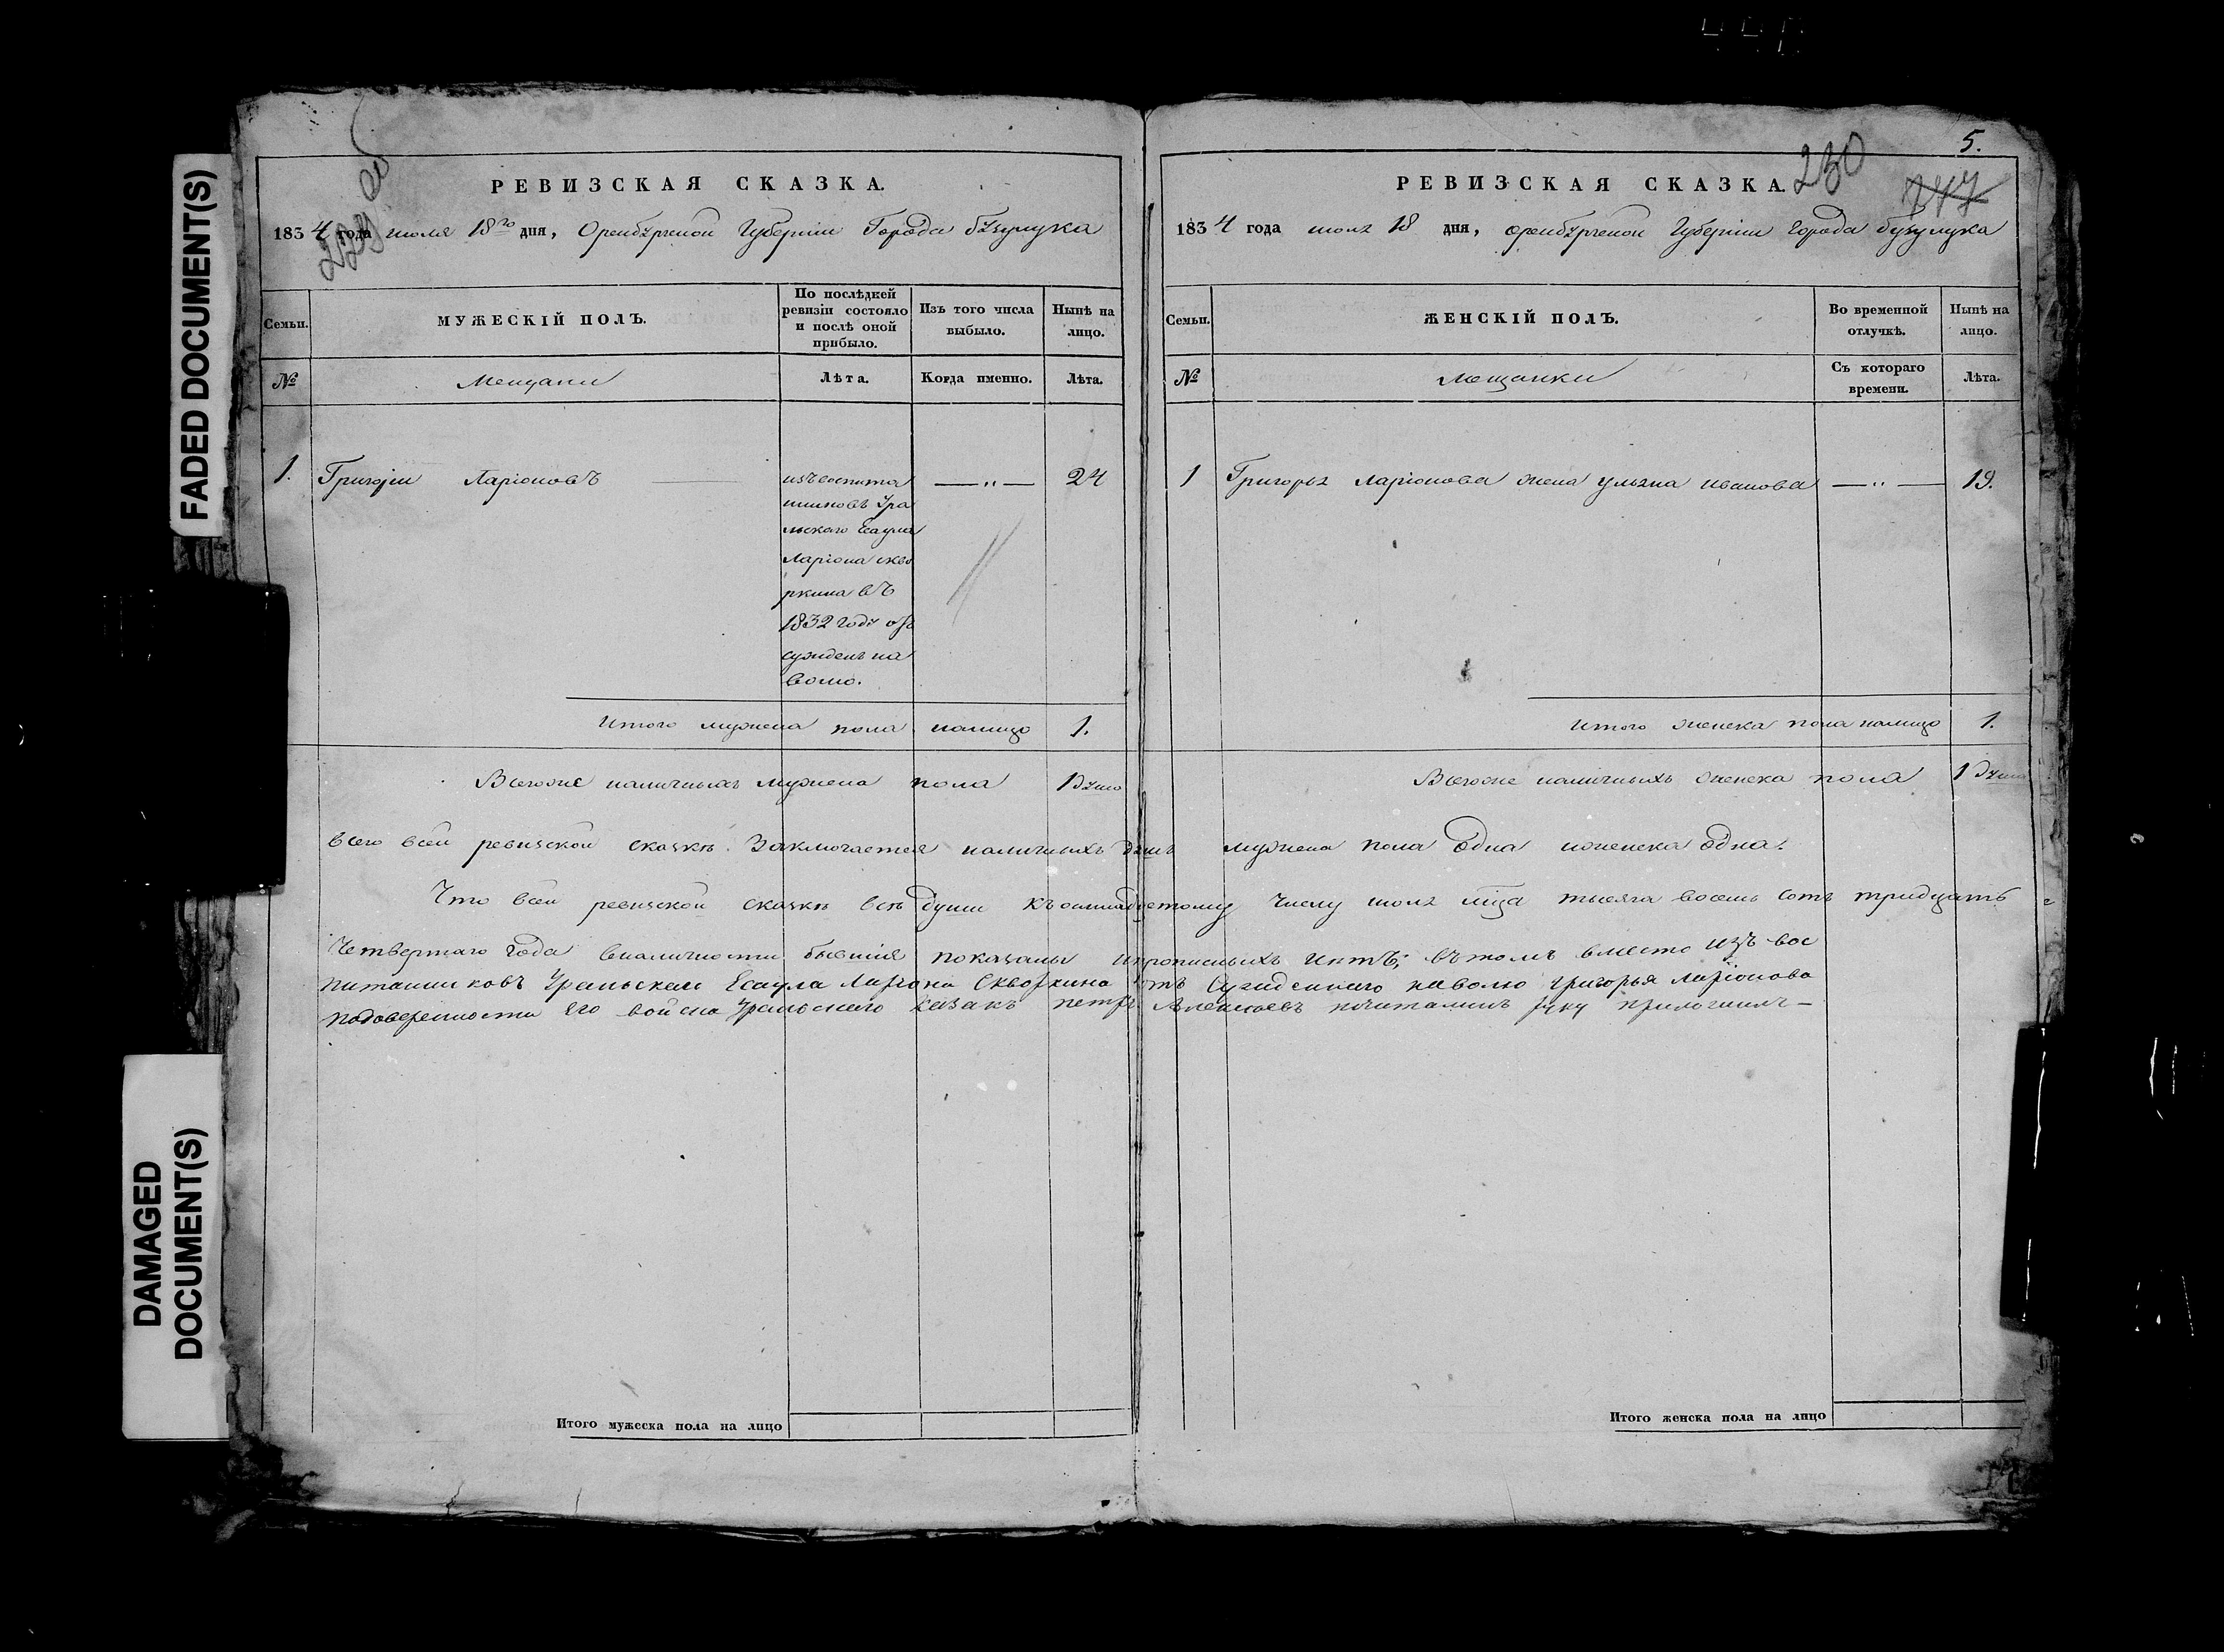 FADED DOCUMENT(S)
DAMAGED
DOCUMENT(S)
229 об
РЕВИЗСКАЯ СКАЗКА.
1834 года июля 18го дня, Оренбургской Губернiи Города бузулука
Семьи.
МУЖЕСКIЙ ПОЛЪ.
По послѣдней
ревизiи состояло
и послѣ оной
прибыло.
Изъ того числа
выбыло.
Нынѣ на
лицо.
№
Мещани
Лѣта.
Когда именно.
Лѣта.
1.
Григорiи Ларiоновъ
изъ воспита
нниковъ Ура
льскаго Есаула
Ларiона скво
ркина въ
1832 году от
сужденъ на
волю.
— „ —
24
Итого мужска пола налицо 1.
Всегоже наличныхъ мужска пола 1 душа
5.
230
247
РЕВИЗСКАЯ СКАЗКА.
1834 года июля 18 дня, оренбургской Губернiи города бузулука
Семьи.
ЖЕНСКIЙ ПОЛЪ.
Во временной
отлучкѣ.
Нынѣ на
лицо.
№
Мещанки
Съ котораго
времени.
Лѣта.
1 Григорья Ларiонова жена ульяна иванова — „ — 19.
Итого женска пола налицо 1.
Всегоже наличныхъ женска пола 1 душа
всего всей ревизской сказкѣ Заключается наличныхъ душъ мужска пола Одна иженска Одна.
Что всей ревизской сказкѣ всѣ души къ осмнадцетому числу июля мца тысяча восемь сотъ тридцать
Четвертаго года вналичности бывшiя показаны ипрописныхъ нѣтъ; вътомъ вместо изъ вос
питанниковъ Уральскаго Есаула Ларiона Скворкина отъ Сужденнаго наволю григорья Ларiонова
подоверенности Его войска Уральскаго казакъ петръ Алексеевъ руку приложилъ —
Итого мужеска пола на лицо
Итого женска пола на лицо